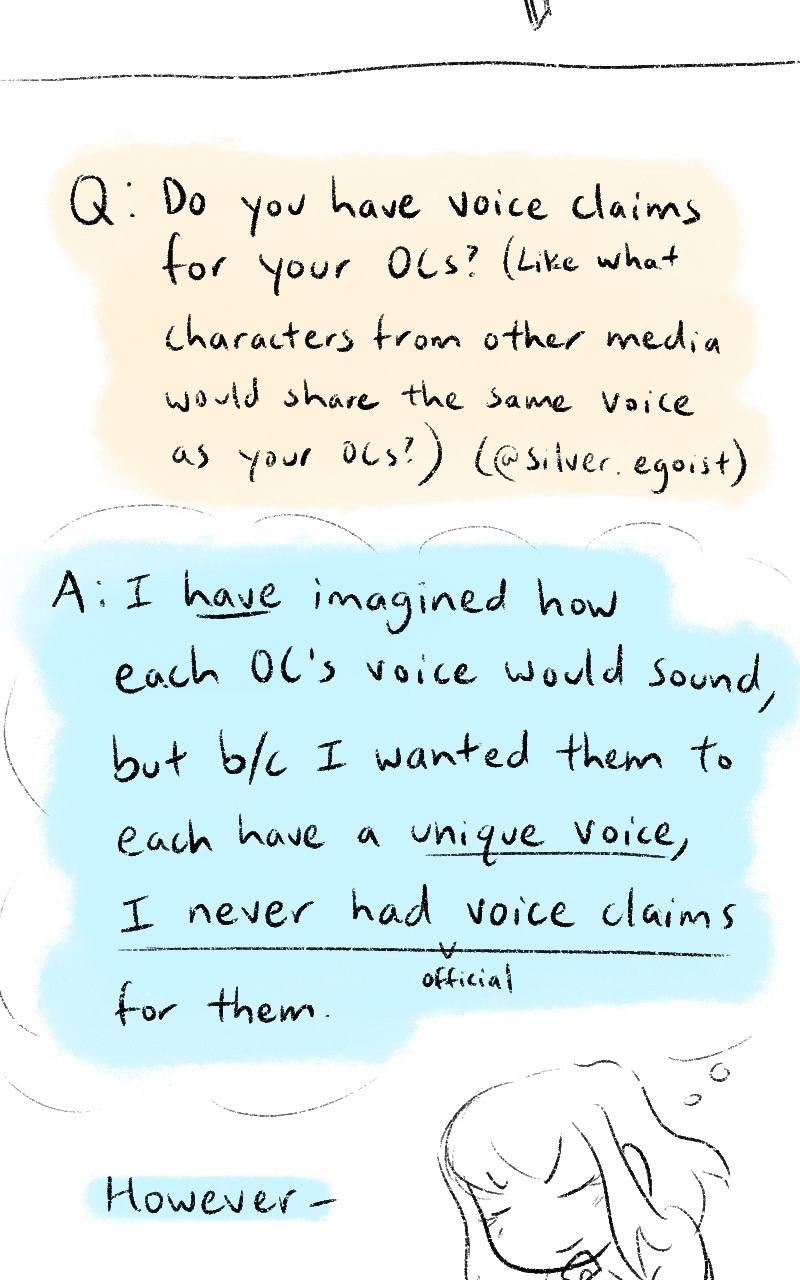 Q: Do you have voice claims
for your OCs? (Like what
characters from other media
would share the same voice
as your OCs?) (@silver.egoist)
A: I have imagined how
each OC's voice would sound,
but b/c I wanted them to
each have a unique voice,
I never had voice claims
official
for them.
However-